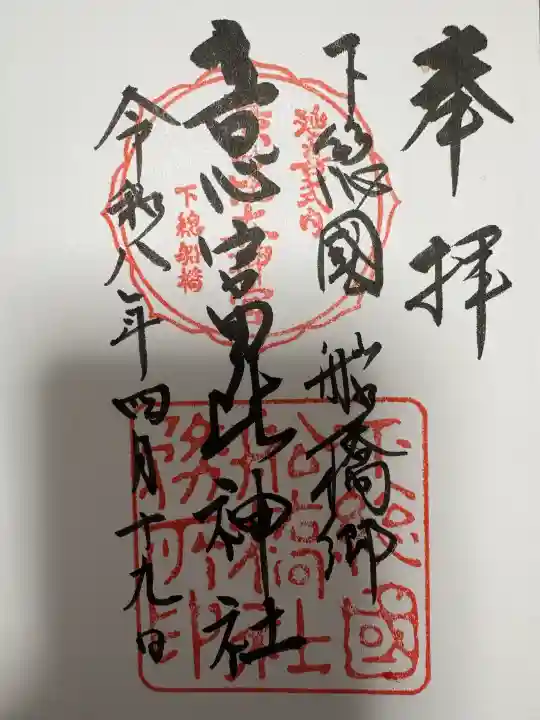 奉拝
下総國 船橋郷
意富比神社
令和八年四月十九日
延喜式内
下総船橋